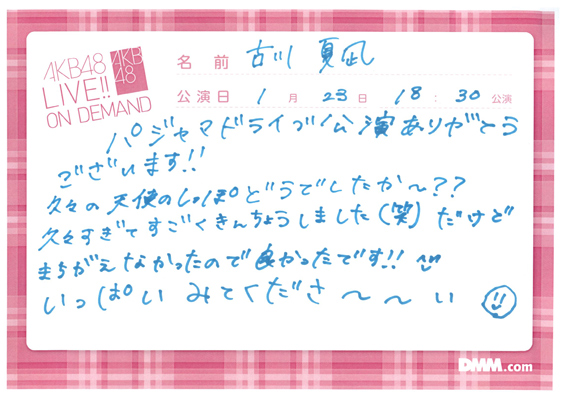 AKB48
LIVE!!
ON DEMAND
AKB
48
名前 古川 夏凪
公演日 1月23日 18:30公演
パジャマドライブ公演ありがとう
ございます!!
久々の天使のしっぽどうでしたか〜??
久々すぎてすごくきんちょうしました(笑)だけど
まちがえなかったので良かったです!!
いっぱいみてくださ〜〜い
DMM.com